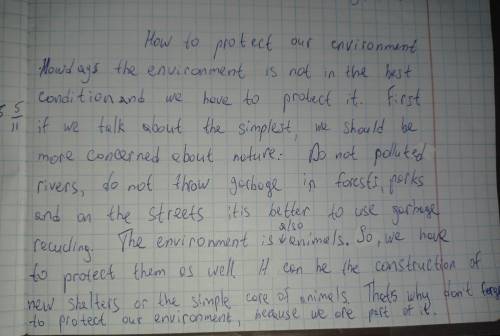 How to protect our environment
Nowdays the environment is not in the best
condition and we have to protect it. First
if we talk about the simplest, we should be
more concerned about nature: Do not polluted
rivers, do not throw garbage in forests, parks
and on the streets itis better to use garbage
recycling. The environment is also animals. So, we have
to protect them as well. It can be the construction of
new shelters or the simple care of animals. Thats why don't forget
to protect our environment, because we are part of it.